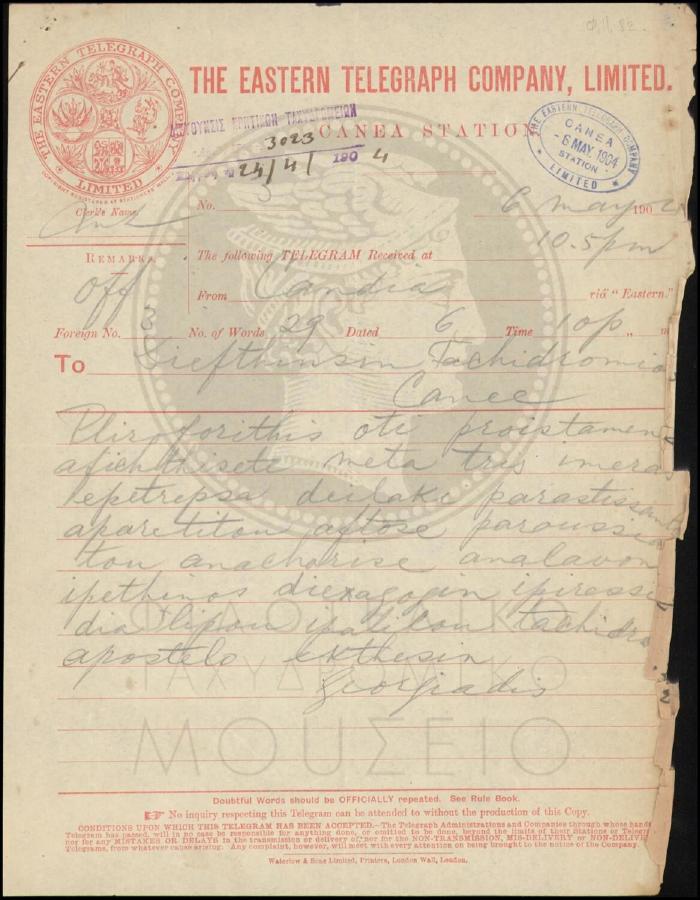 Φ.11.82.
THE EASTERN TELEGRAPH COMPANY, LIMITED.
THE EASTERN TELEGRAPH COMPANY LIMITED
(COPYRIGHT REGISTERED AT STATIONERS HALL)
ΔΙΕΥΘΥΝΣΙΣ ΚΡΗΤΙΚΩΝ ΤΑΧΥΔΡΟΜΕΙΩΝ
3023
24/4/ 190 4
CANEA STATION
THE EASTERN TELEGRAPH COMPANY
CANEA
- 6 MAY. 1904
STATION
LIMITED
Clerk's Name.
No.
6 May 190 4
10.5 pm
REMARKS.
The following TELEGRAM Received at
off
From Candia viâ "Eastern."
Foreign No. 3 No. of Words 29 Dated 6 Time 10 p m
To Diefthinsin Tachidromio
Canee
Pliroforithis oti proistameno
afichthisete meta tris imeras
epetrepsa deilaki
aparetiton aftose paroussia
ton anachorise analavon
ipethinos diexagogin ipiressi
dia lipon ipallilon tachidro
apostelo ekthesin
Georgiadis
2
ΦΙΛΟΤΕΛΙΚΟ
ΤΑΧΥΔΡΟΜΙΚΟ
ΜΟΥΣΕΙΟ
Doubtful Words should be OFFICIALLY repeated. See Rule Book.
No inquiry respecting this Telegram can be attended to without the production of this Copy.
CONDITIONS UPON WHICH THIS TELEGRAM HAS BEEN ACCEPTED.—The Telegraph Administrations and Companies through whose hands
Telegram has passed, will in no case be responsible for anything done, or omitted to be done, beyond the limits of their Stations or Telegr
nor for any MISTAKES OR DELAYS in the transmission or delivery of, nor for the NON-TRANSMISSION, MIS-DELIVERY or NON-DELIVE
Telegrams, from whatever cause arising. Any complaint, however, will meet with every attention on being brought to the notice of the Company.
Waterlow & Sons Limited, Printers, London Wall, London.